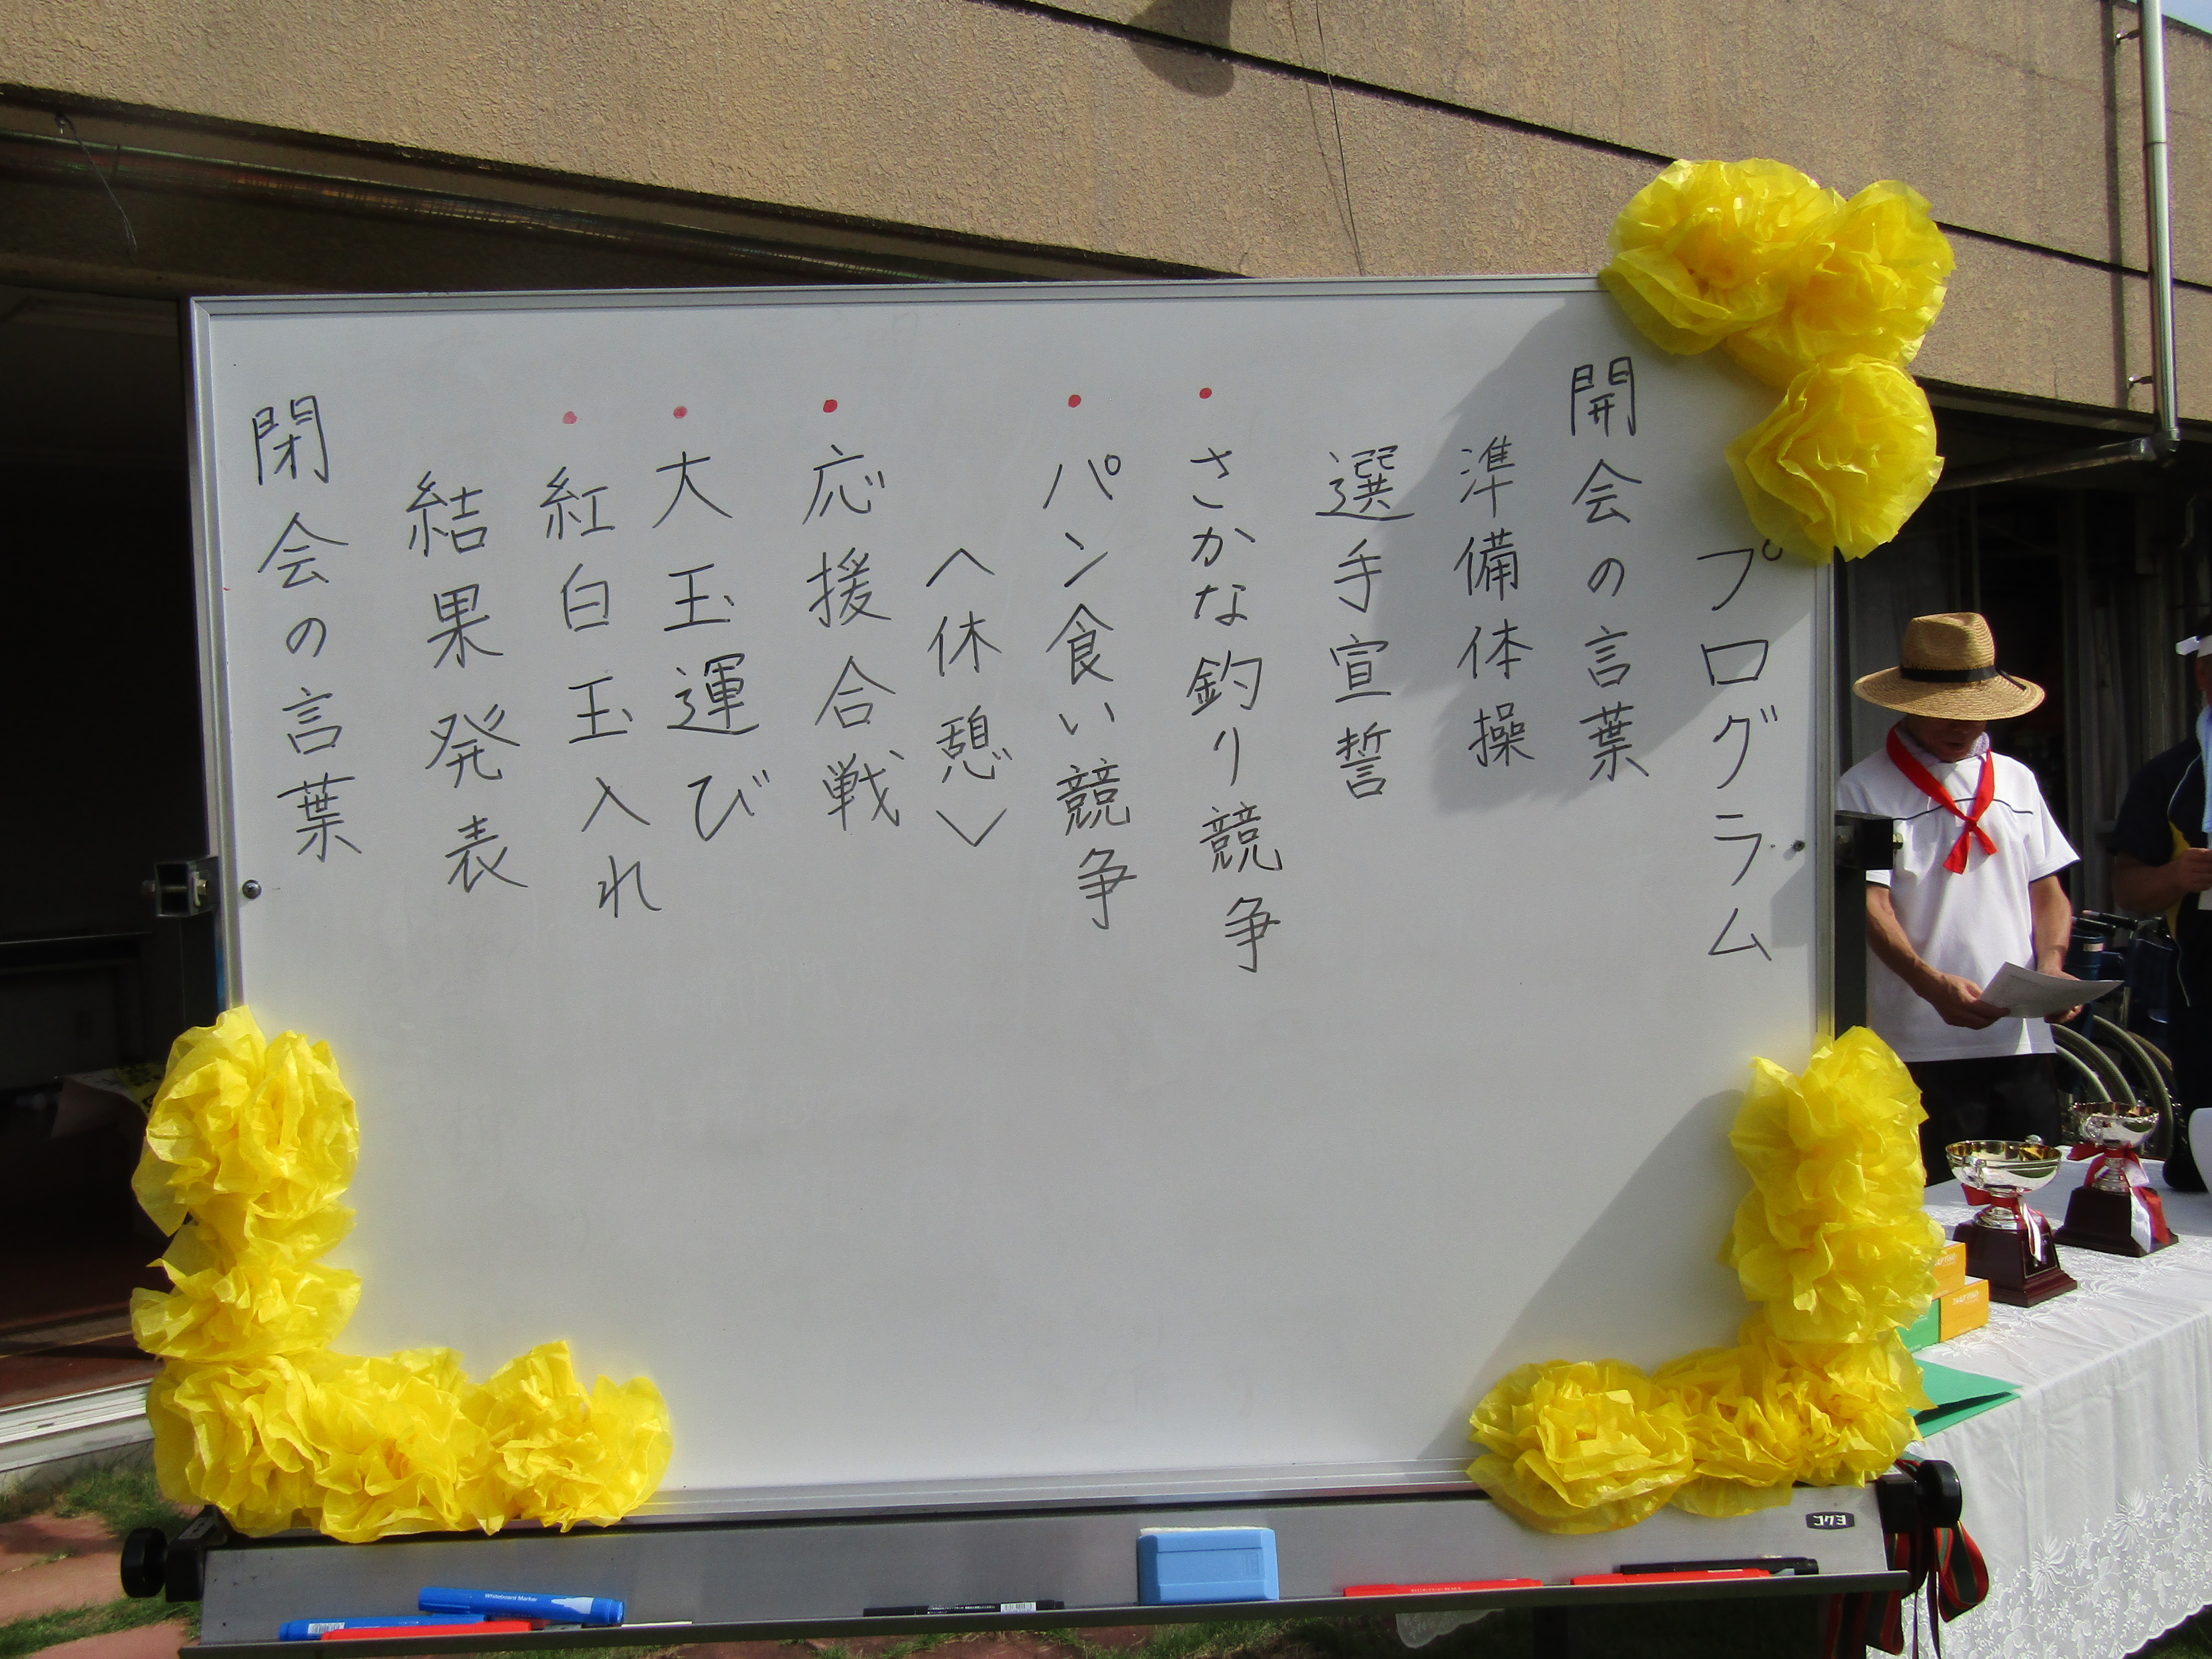 プログラム
開会の言葉
準備体操
選手宣誓
・さかな釣り競争
・パン食い競争
〈休憩〉
・応援合戦
・大玉運び
・紅白玉入れ
結果発表
閉会の言葉
コクヨ
Whiteboard Marker